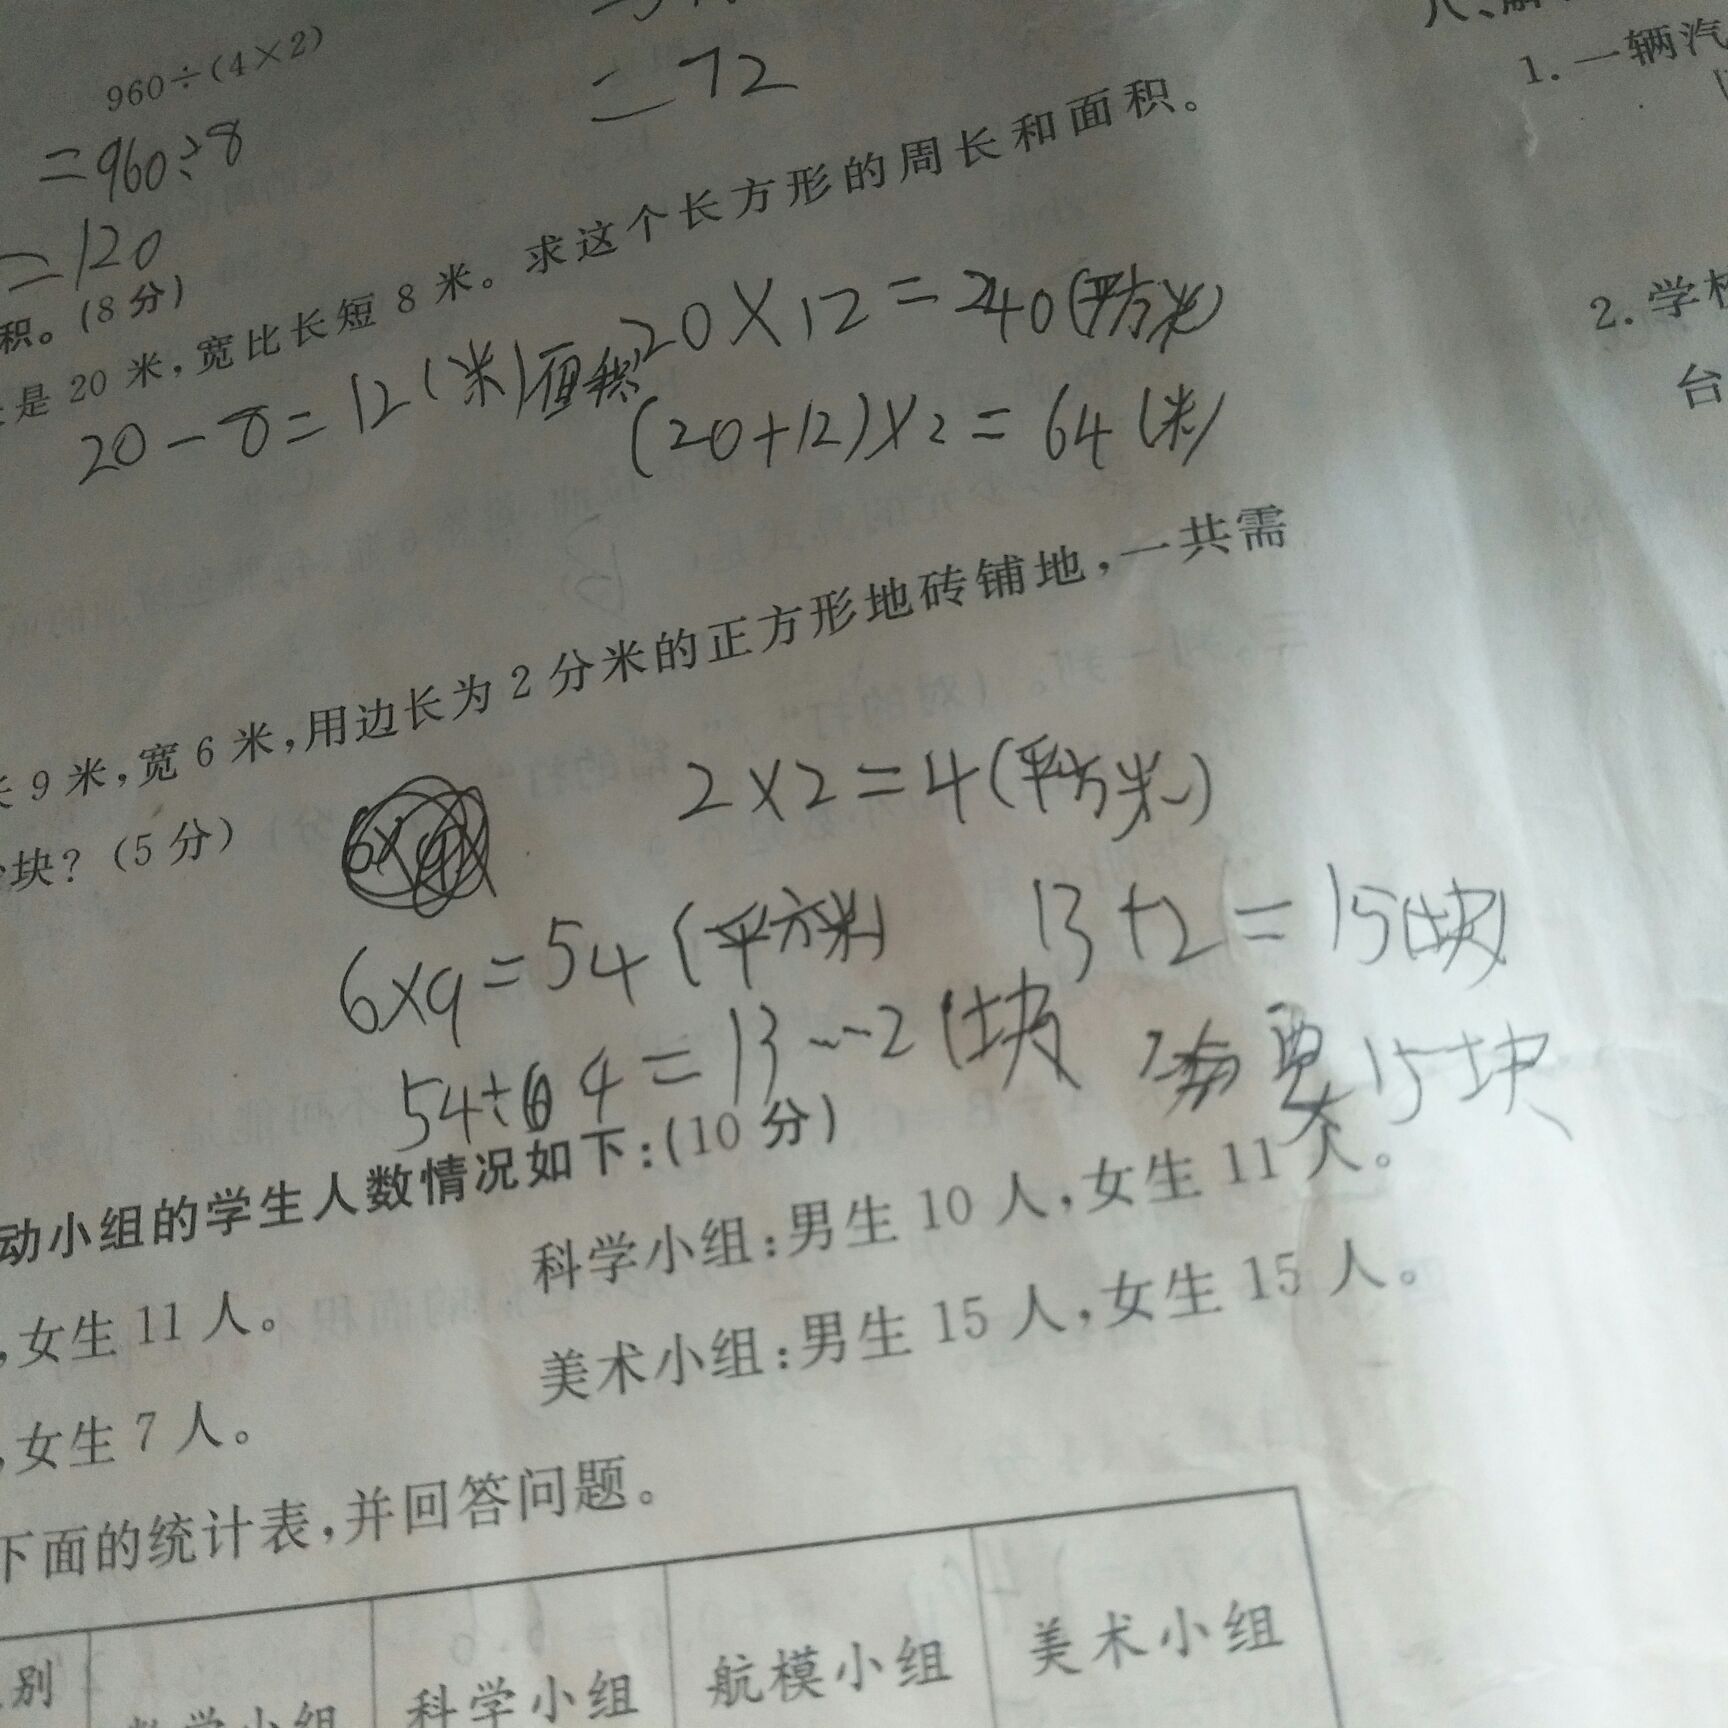 960÷(4×2)
=960÷8
=120
=72
积。(8分)
是 20 米,宽比长短 8 米。求这个长方形的周长和面积。
20-8=12(米)面积20×12=240(平方米)
(20+12)×2=64(米)
9 米,宽 6 米,用边长为 2 分米的正方形地砖铺地,一共需
块?(5分)
2×2=4(平方米)
6×9=54(平方米)
13+2=15(块)
54÷4=13……2(块)
要15块
动小组的学生人数情况如下:(10 分)
科学小组:男生 10 人,女生 11 人。
,女生 11 人。
美术小组:男生 15 人,女生 15 人。
,女生 7 人。
下面的统计表,并回答问题。
别
学小组
科学小组
航模小组
美术小组
1.一辆汽
2.学校
台